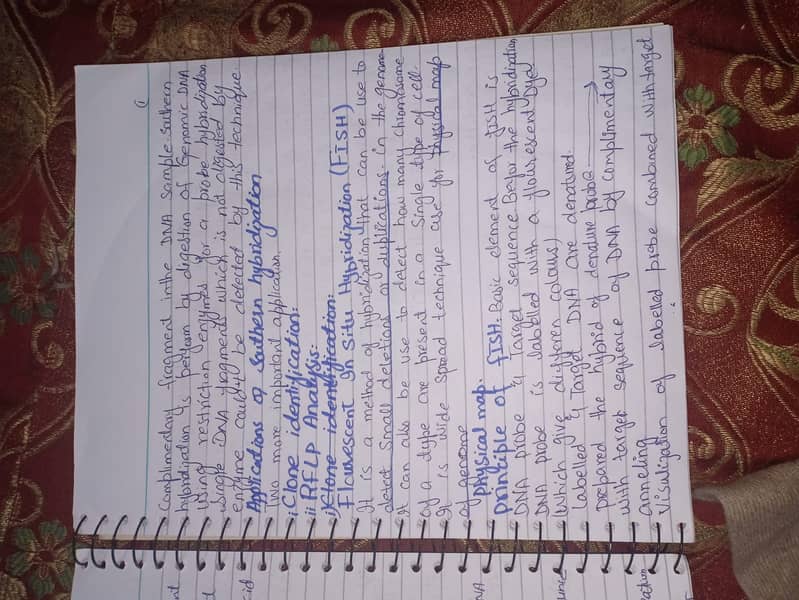 Complimentary fragment in the DNA sample. Suthern
hybridization is perform by digestion of Genomic DNA
using restriction enzymes for a probe hybridization
single DNA fragments which is not digested by
enzyme could be detected by this technique.
Applications of Southern hybridization
Two more important application.
i) Clone identification:
ii) RFLP Analysis:
i) Clone identification:
Flourescent In Situ Hybridization (FISH)
It is a method of hybridization that can be use to
detect small deletions or duplications in the genome
It can also be use to detect how many chromosome
of a type are present in a single type of cell.
It is wide spread technique use for physical map
of genome
Physical map.
Principle of FISH: Basic element of FISH is
DNA probe & target sequence Befor the hybridization
DNA probe is labelled with a flourescent Dye
(which give differen colours)
Labelled & Target DNA are denatured.
Prepared the hybrid of denature probe
with target sequence of DNA by complimentary
anneling
Visulization of labelled probe combined with target
id
DNA